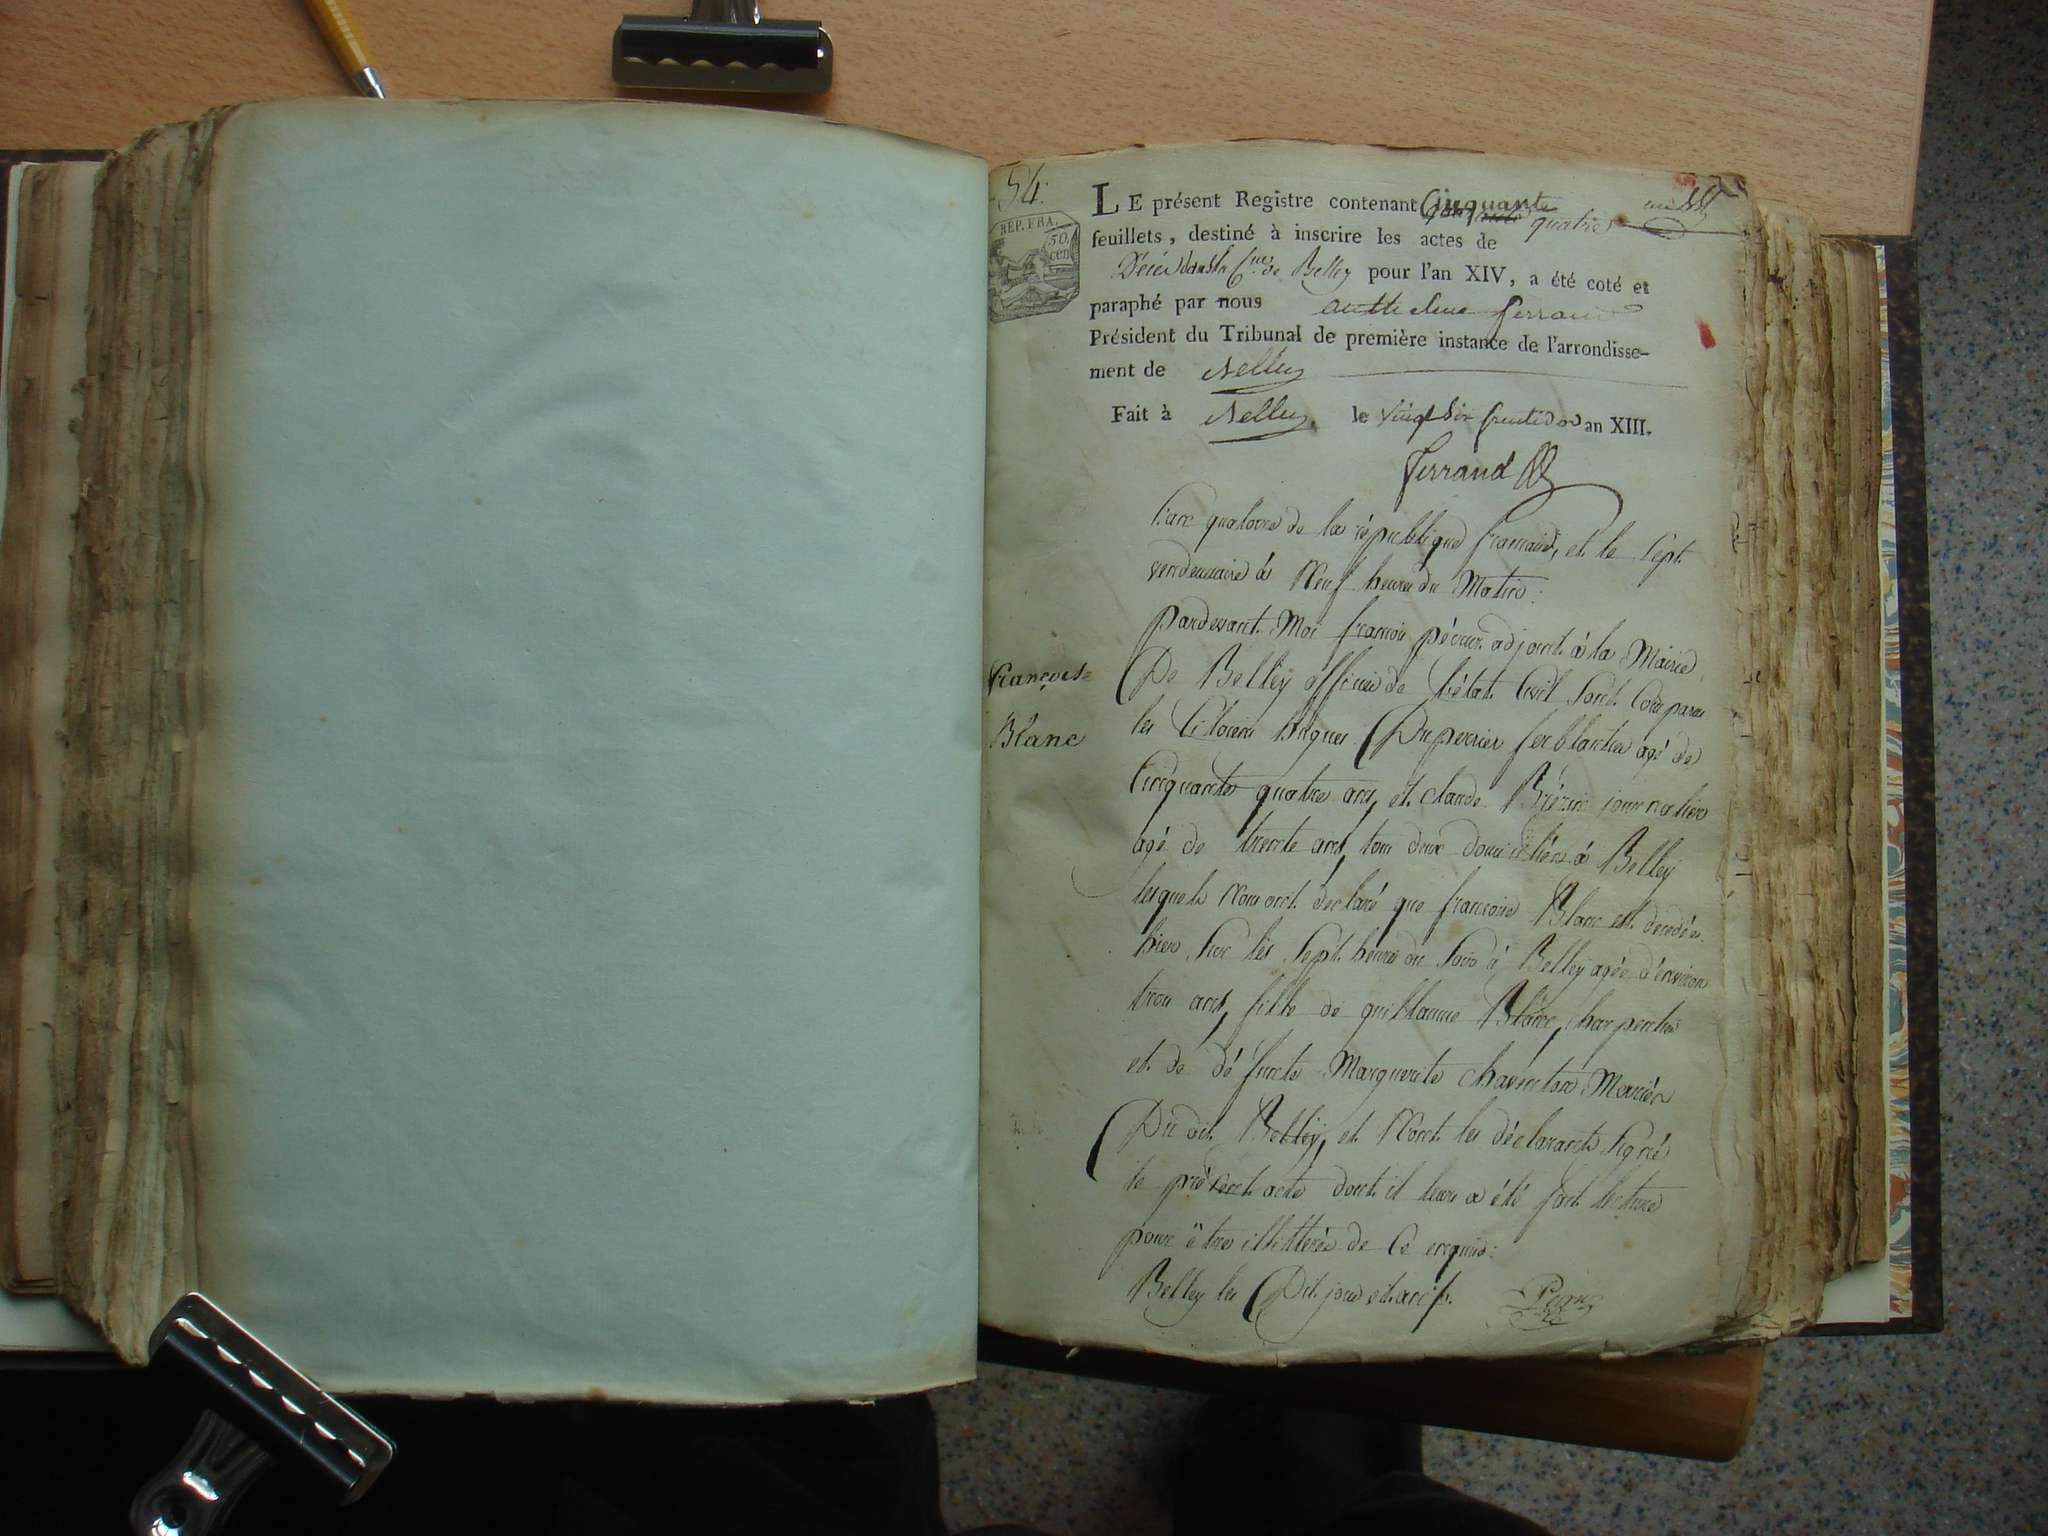 54.
REP. FRA.
50.
cen
LE présent Registre contenant Cinquante
quatre
feuillets, destiné à inscrire les actes de
Décès dans la Cne de Belley pour l'an XIV, a été coté et
paraphé par nous anthelme ferrand
Président du Tribunal de première instance de l'arrondisse-
ment de Belley
Fait à Belley le vingt six fructidor an XIII.
ferrand
L'an quatorze de la république francaise, et le Sept
vendemiaire à Neuf heures du Matin:
pardevant Moi francois adjoint à la Mairie
De Belley officier de L'état Civil Sont Comparu
les Citoiens hugues Duperrier ferblantier agé de
Cinquante quatre ans, et claude journalier
agé de trente ans, tous deux domiciliés à Belley
lesquels Nous ont déclaré que francoise Blanc est decedée
hier Sur les Sept heures du Soir à Belley agée d'environ
trois ans, fille de guillaume Blanc, charpentier
et de défunte Marguerite mariés
Du dit Belley, et N'ont les déclarants Signé
le présent acte dont il leur a été fait lecture
pour être illitterés de Ce enquis:
Belley les Dit jour et an p.
françoise
Blanc